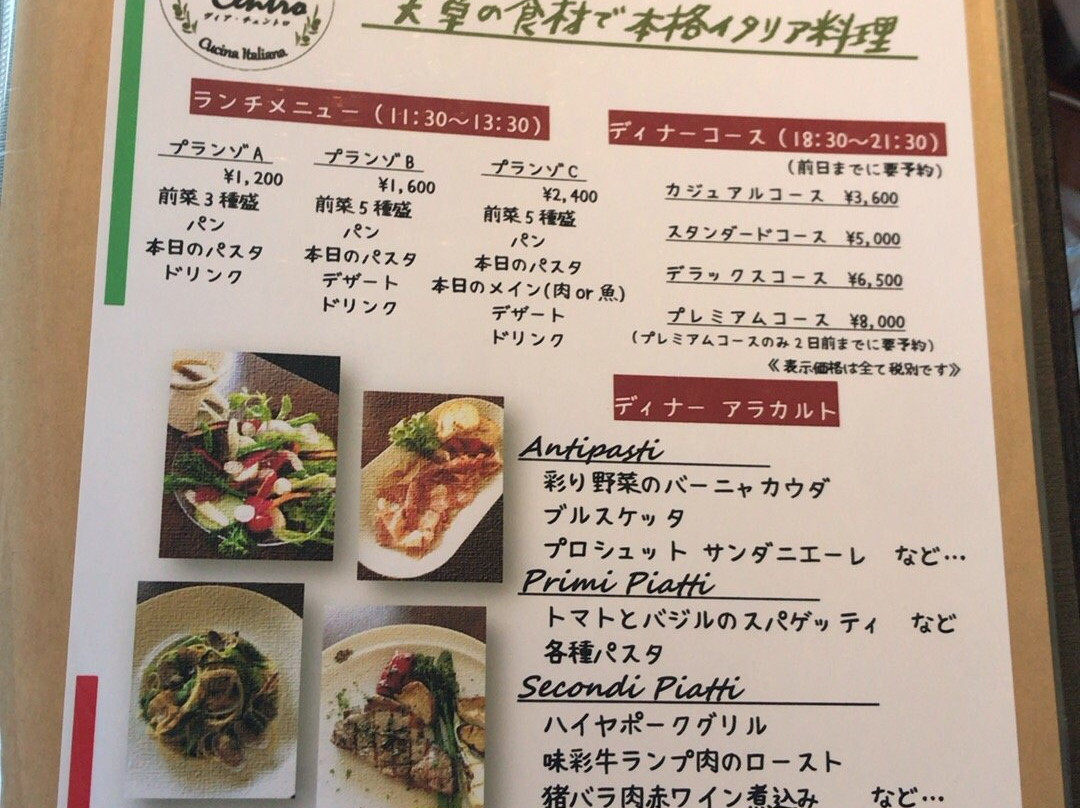 Centro
ヴィア・チェントロ
Cucina Italiana
天草の食材で本格イタリア料理
ランチメニュー（11:30〜13:30）
プランゾA
¥1,200
前菜３種盛
パン
本日のパスタ
ドリンク
プランゾB
¥1,600
前菜５種盛
パン
本日のパスタ
デザート
ドリンク
プランゾC
¥2,400
前菜５種盛
パン
本日のパスタ
本日のメイン(肉or魚)
デザート
ドリンク
ディナーコース（18:30〜21:30）
（前日までに要予約）
カジュアルコース ¥3,600
スタンダードコース ¥5,000
デラックスコース ¥6,500
プレミアムコース ¥8,000
（プレミアムコースのみ２日前までに要予約）
《表示価格は全て税別です》
ディナー アラカルト
Antipasti
彩り野菜のバーニャカウダ
ブルスケッタ
プロシュット サンダニエーレ など…
Primi Piatti
トマトとバジルのスパゲッティ など
各種パスタ
Secondi Piatti
ハイヤポークグリル
味彩牛ランプ肉のロースト
猪バラ肉赤ワイン煮込み など…